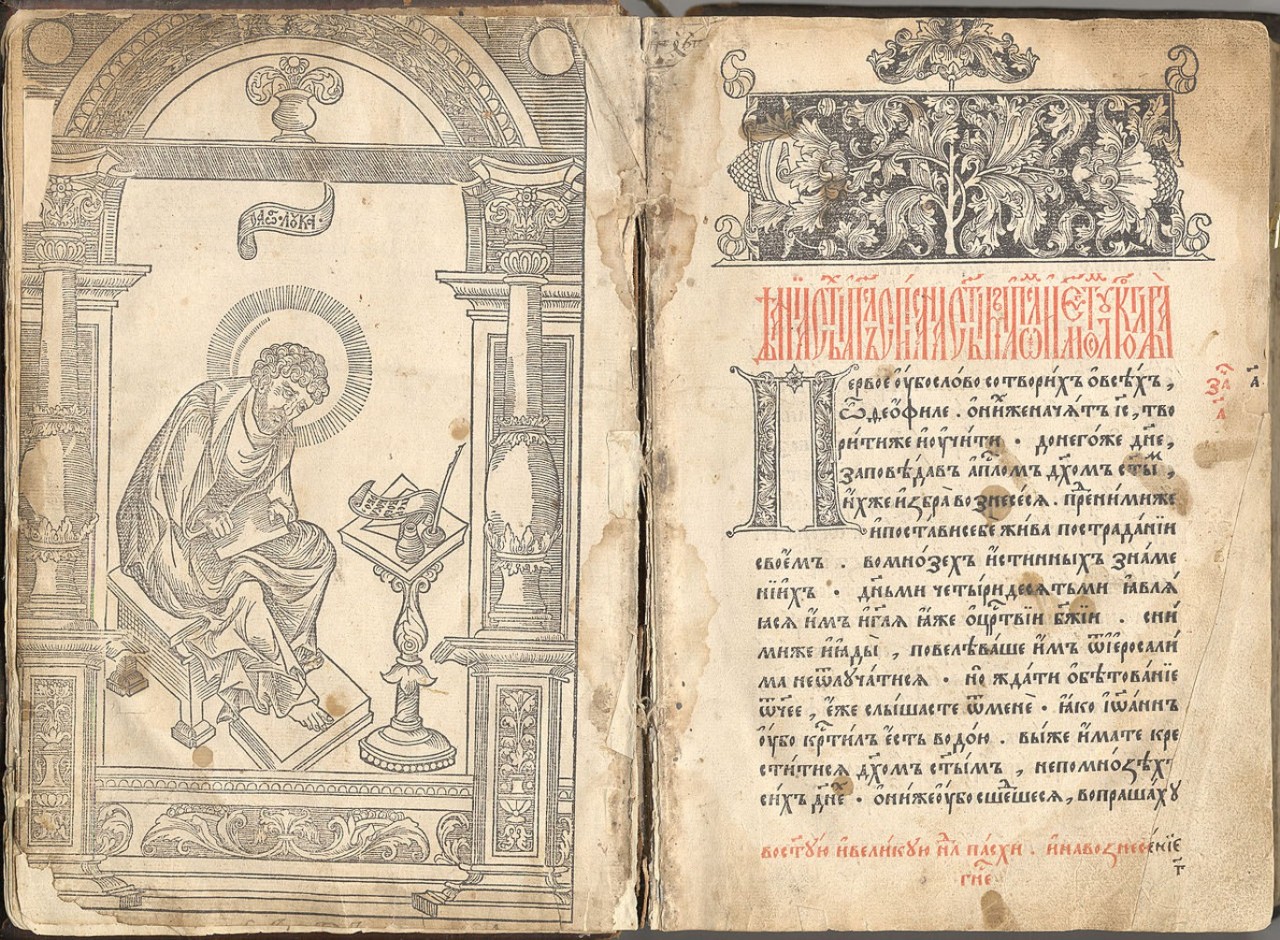 лꙋка
Первое ᲂу҆бо сло́во сотвори́хъ ѻ҆ всѣ́хъ ,
ѽ Ѳео́филе . ѡ҆ ни́хже начя́тъ і҆с , тво
ри́ти же и҆ ᲂу҆чи́ти · до него́же дн҃е ,
заповѣ́давъ а҆пⷭ҇ломъ дх҃омъ ст҃ыⷨ ,
и҆́хже и҆збра̀ вознесе́ся . пред ни́миже
и҆ поста́ви себе жи́ва по страда́нїи
свое́мъ . во мно́зехъ и҆́стинныхъ зна́ме
нїихъ · дн҃ьми четы́ридесятьми ꙗ҆влѧ́
ꙗся и҆̀мъ и҆ гл҃ѧ ꙗ҆̀же ѻ҆ црⷭ҇твїи бж҃їи . сни́
миже и҆ ꙗды̀ , повелѣва́ше и҆̀мъ ѿ і҆еросали́
ма не ѿлуча́тися · но жда́ти ѻ҆бѣтова́нїе
ѿч҃ее , є҆́же слы́шасте ѿ менѐ · ꙗ҆́ко і҆ѡа́ннъ
ᲂу҆́бо крⷭ҇ти́лъ є҆́сть водо́ю . вы́же и҆́мате кре
сти́тися дх҃омъ ст҃ы́мъ , не по мно́ѕѣхъ
си́хъ дн҃е · ѻ҆ни́же ᲂу҆́бо сше́дшеся , вопраша́хꙋ
в ст҃ꙋ́ю и҆ вели́кꙋю нлⷧ҇ па́схи . и҆ на вознесе́нїе
гн҃е